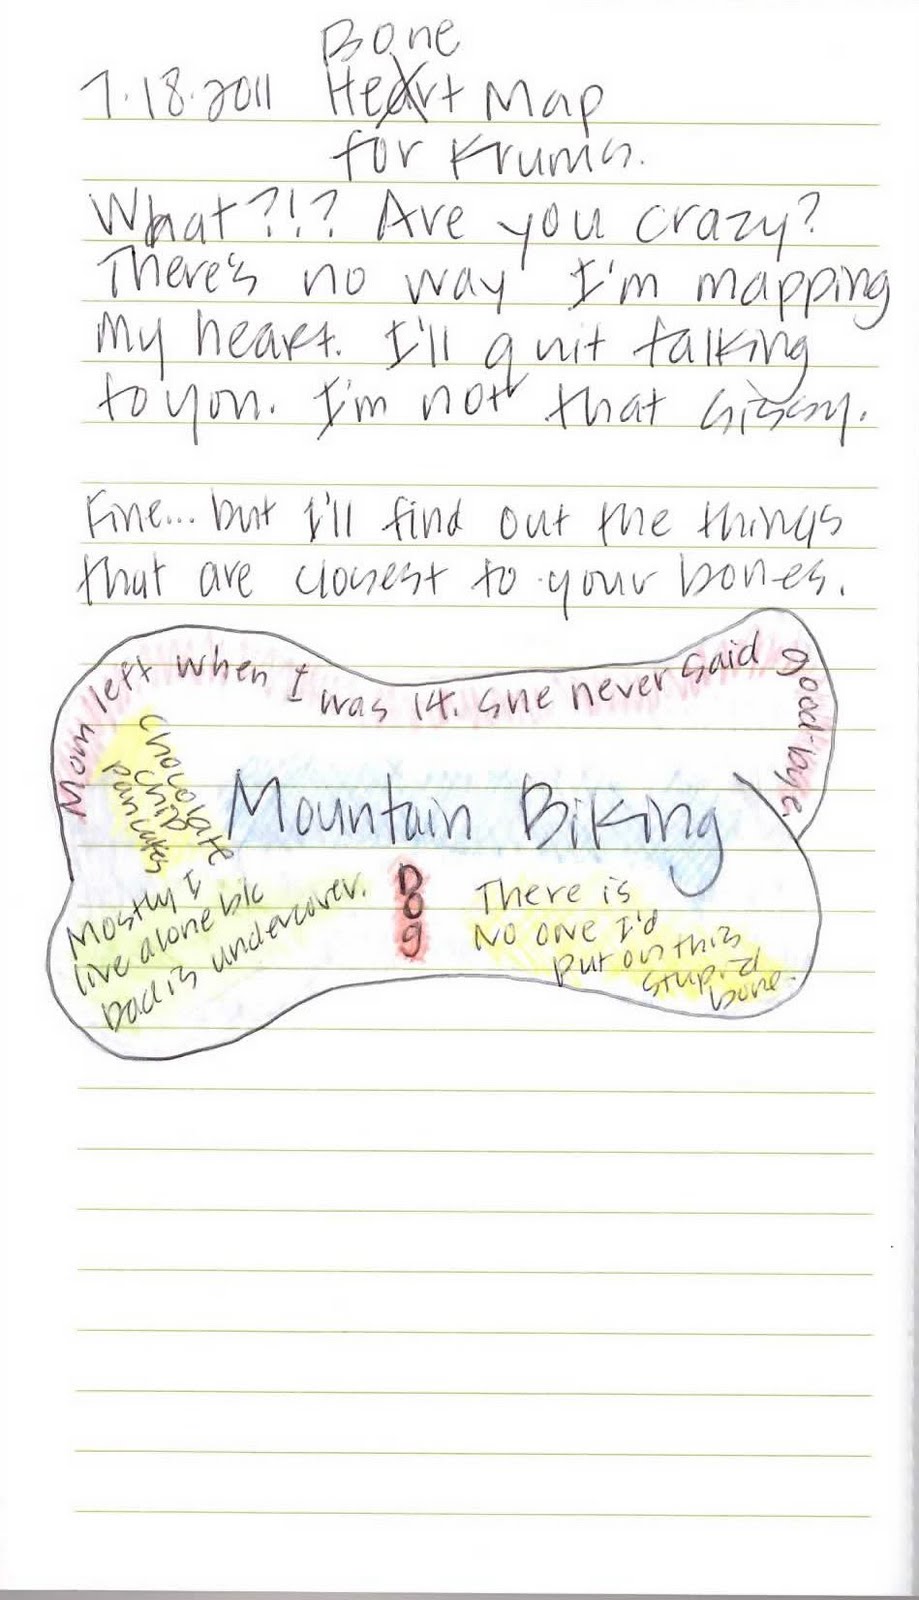 Bone
7.18.2011 Heart Map
for Krums.
What?!? Are you crazy?
There's no way I'm mapping
my heart. I'll quit talking
to you. I'm not that sissy.
Fine... but I'll find out the things
that are closest to your bones.
Mom left when I was 14. She never said good-bye.
Chocolate
chip
pancakes
Mountain Biking
Mostly I
live alone b/c
Dad is undercover.
Dog
There is
No one I'd
put on this
stupid
bone.